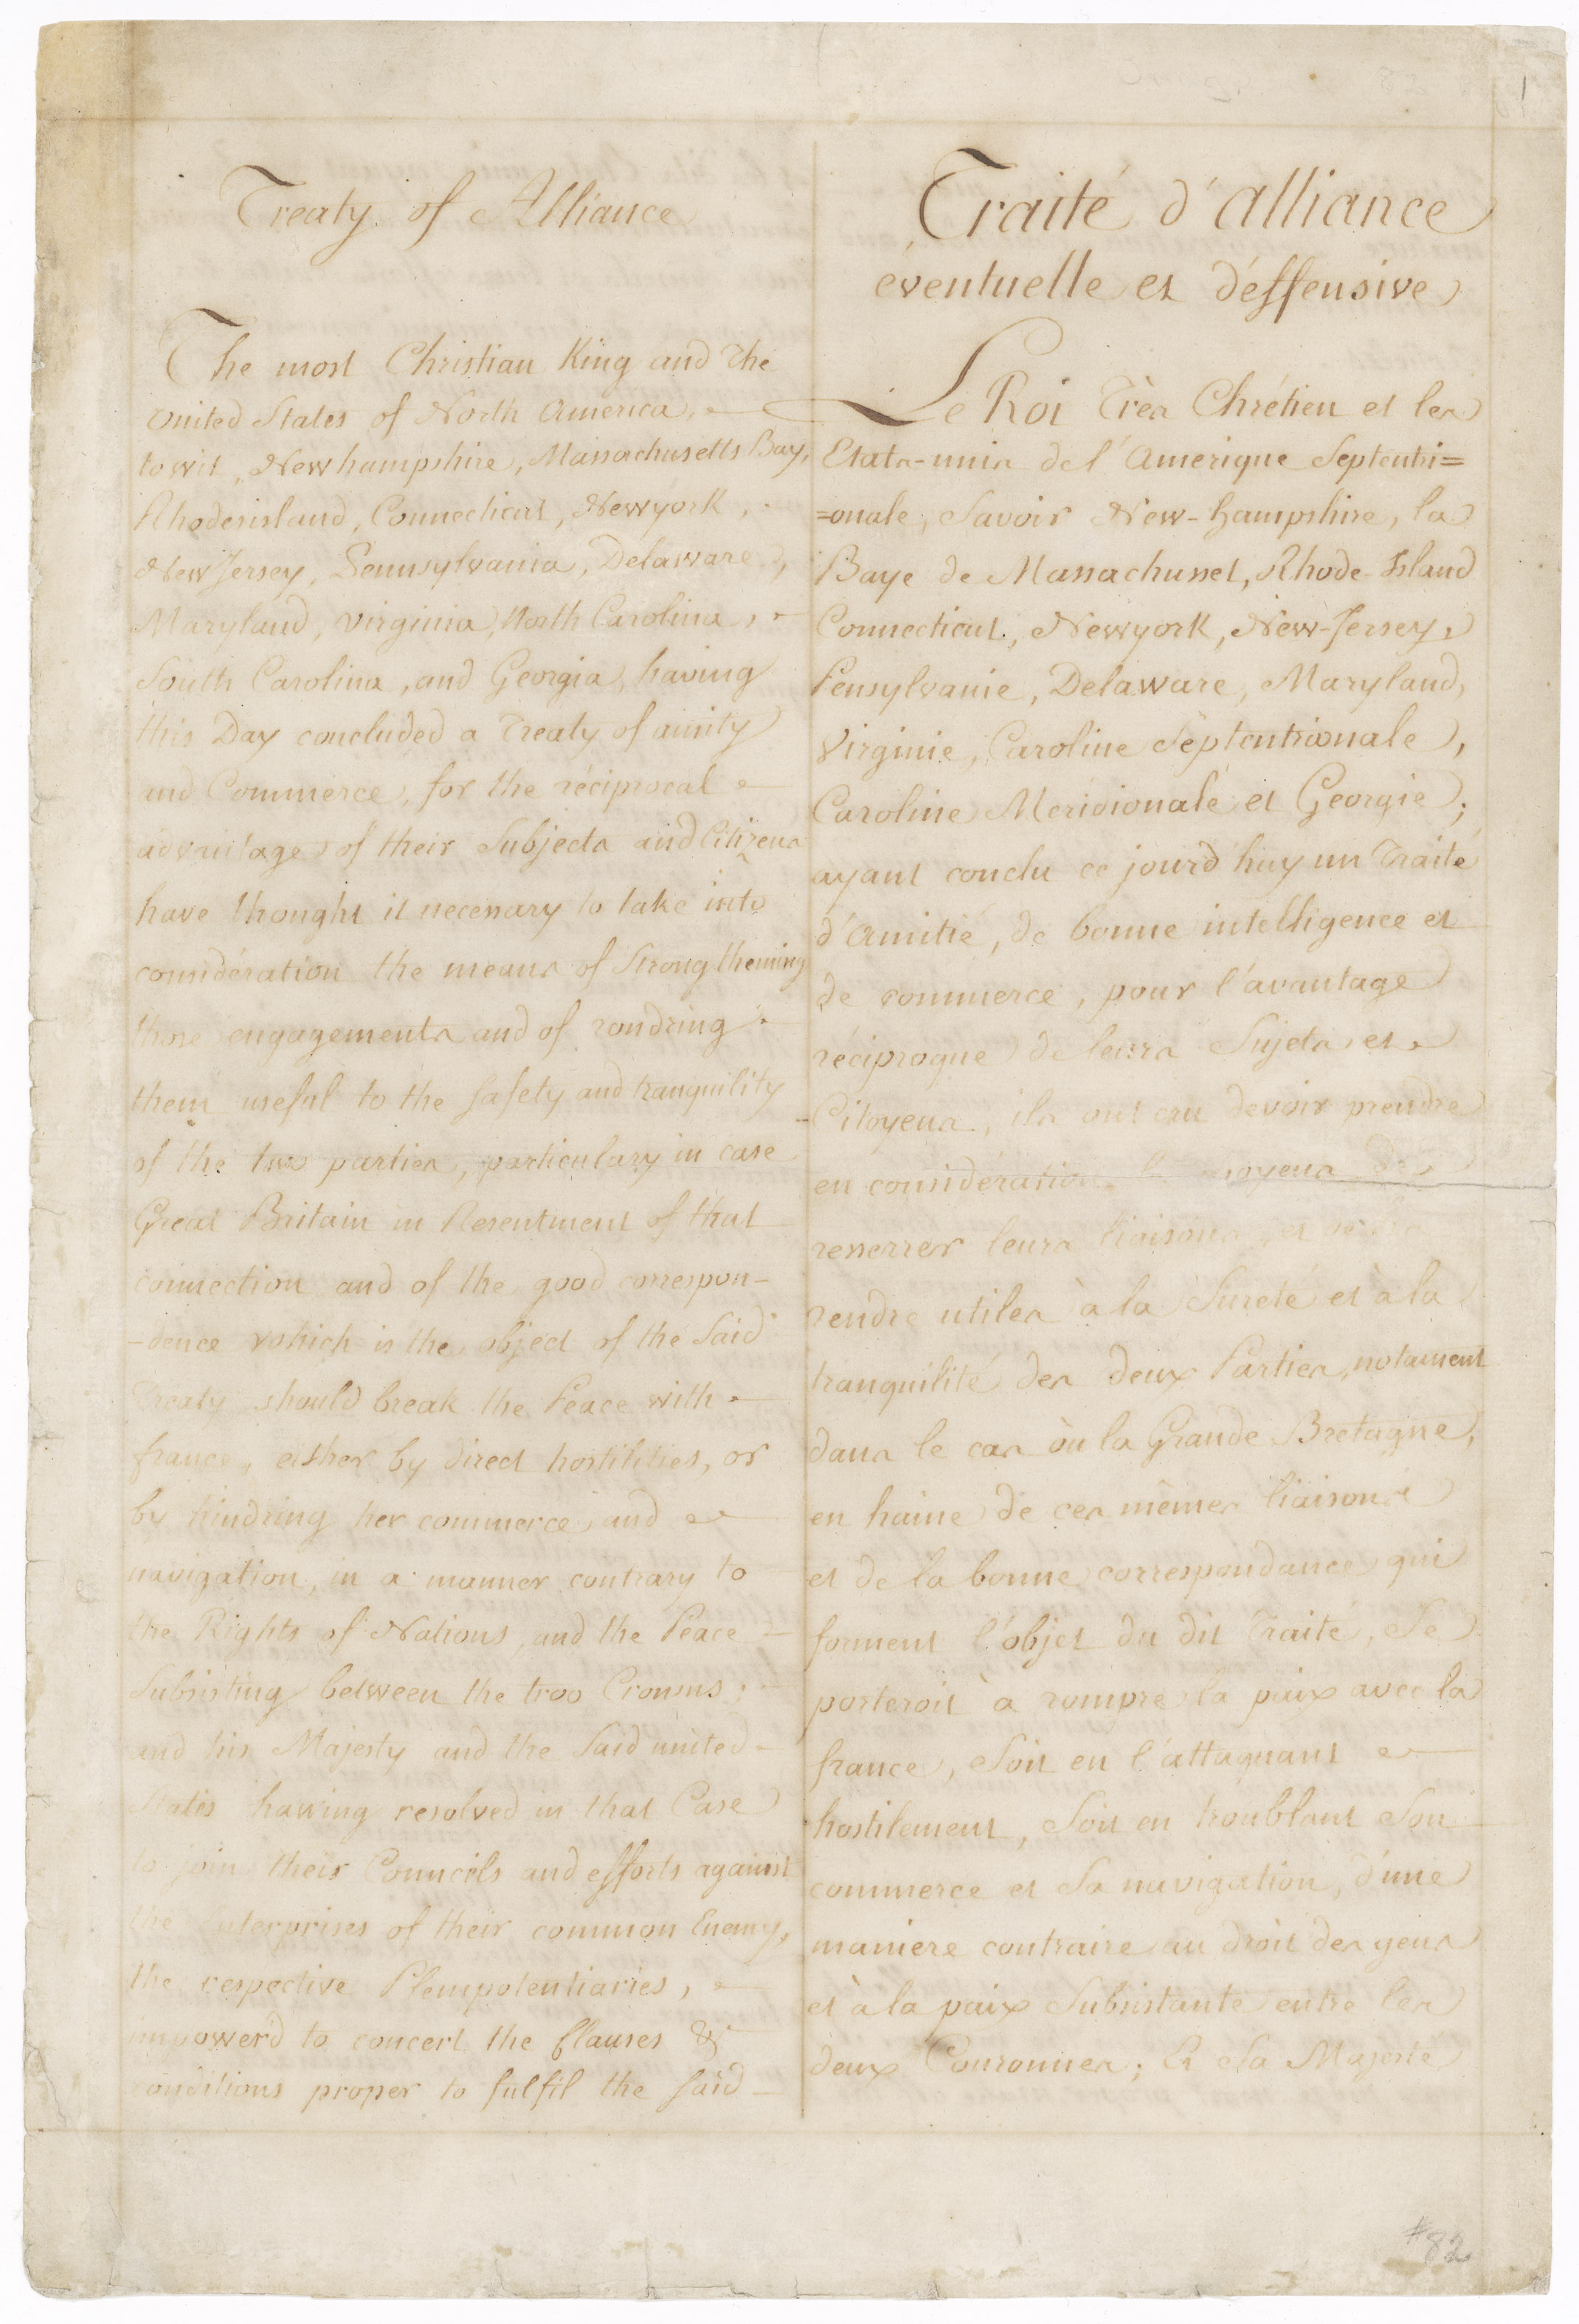 1
Treaty of Alliance
The most Christian King and the
united States of North America,
to wit, Newhampshire, Massachusetts Bay,
Rhodesisland, Connecticut, Newyork,
New Jersey, Pennsylvania, Delaware,
Maryland, Virginia, North Carolina,
South Carolina, and Georgia, having
this Day concluded a Treaty of amity
and Commerce, for the réciprocal
advantage of their Subjects and Citizens
have thought it necessary to take into
considération the means of Strongthening
those engagements and of rondring
them useful to the safety and tranquility
of the two parties, particulary in case
Great Britain in Resentment of that
connection and of the good correspon-
-dence which is the object of the Said
Treaty should break the Peace with
france, either by direct hostilities, or
by hindring her commerce and
navigation, in a manner contrary to
the Rights of Nations, and the Peace
Subsisting between the two Crowns;
and his Majesty and the Said united
States having resolved in that Case
to join their Councils and efforts against
the enterprises of their common Enemy,
the respective Plenipotentiaries,
impower'd to concert the Clauses &
conditions proper to fulfil the said
Traité d'alliance
éventuelle et déffensive
Le Roi Très Chrétien et les
Etats-unis de l'Amerique Septentri=
=onale, Savoir New-hampshire, la
Baye de Massachusset, Rhode-Island
Connecticut, Newyork, New-Jersey,
Pensylvanie, Delaware, Maryland,
Virginie, Caroline Septentrionale,
Caroline Meridionale et Georgie;
ayant conclu ce jourd'huy un Traité
d'amitié, de bonne intelligence et
de commerce, pour l'avantage
réciproque de leurs Sujets et
Citoyens, ils ont cru devoir prendre
en considération les moyens de
resserrer leurs liaisons, et de les
rendre utiles à la Sureté et à la
tranquilité des deux Parties, notament
dans le cas où la Grande Bretagne,
en haine de ces mêmes liaisons
et de la bonne correspondance qui
forment l'objet du dit Traité, Se
porteroit à rompre la paix avec la
france, Soit en l'attaquant
hostilement, Soit en troublant Son
commerce et Sa navigation, d'une
maniere contraire au droit des gens
et à la paix Subsistante entre les
deux Couronnes; Et Sa Majesté
#82